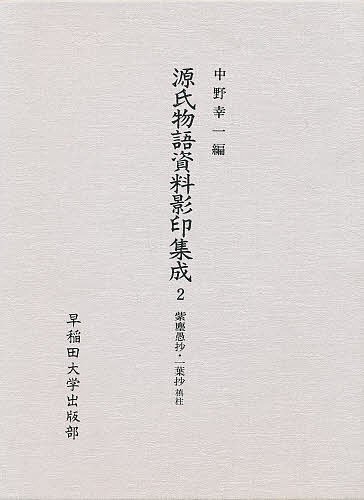 中野幸一編
源氏物語資料影印集成 2
紫塵愚抄・一葉抄 槙柱
早稲田大学出版部